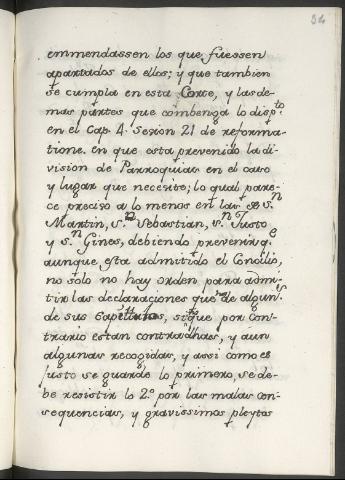 34
emmendassen los que fuessen
apartados de ellos; y que tambien
se cumpla en esta Corte, y las de-
mas partes que combenga lo disp.to
en el Cap. 4. Sesion 21 de reforma-
tione. en que esta prevenido la di-
vision de Parroquias en el caso
y lugar que necesite; lo qual pare-
ce preciso a lo menos en las de S.n
Martin, S.n Sebastian, S.n Justo
y S.n Gines, debiendo prevenir q.e
aunque esta admitido el Concilio,
no solo no hay orden para admi-
tir las declaraciones que de algun.s
de sus Capitulos, si que por con-
trario estan contradhas, y aun
algunas recogidas, y assi como es
justo se guarde lo primero, se de-
be resistir lo 2.o por las malas con-
sequencias, y gravissimos pleytos